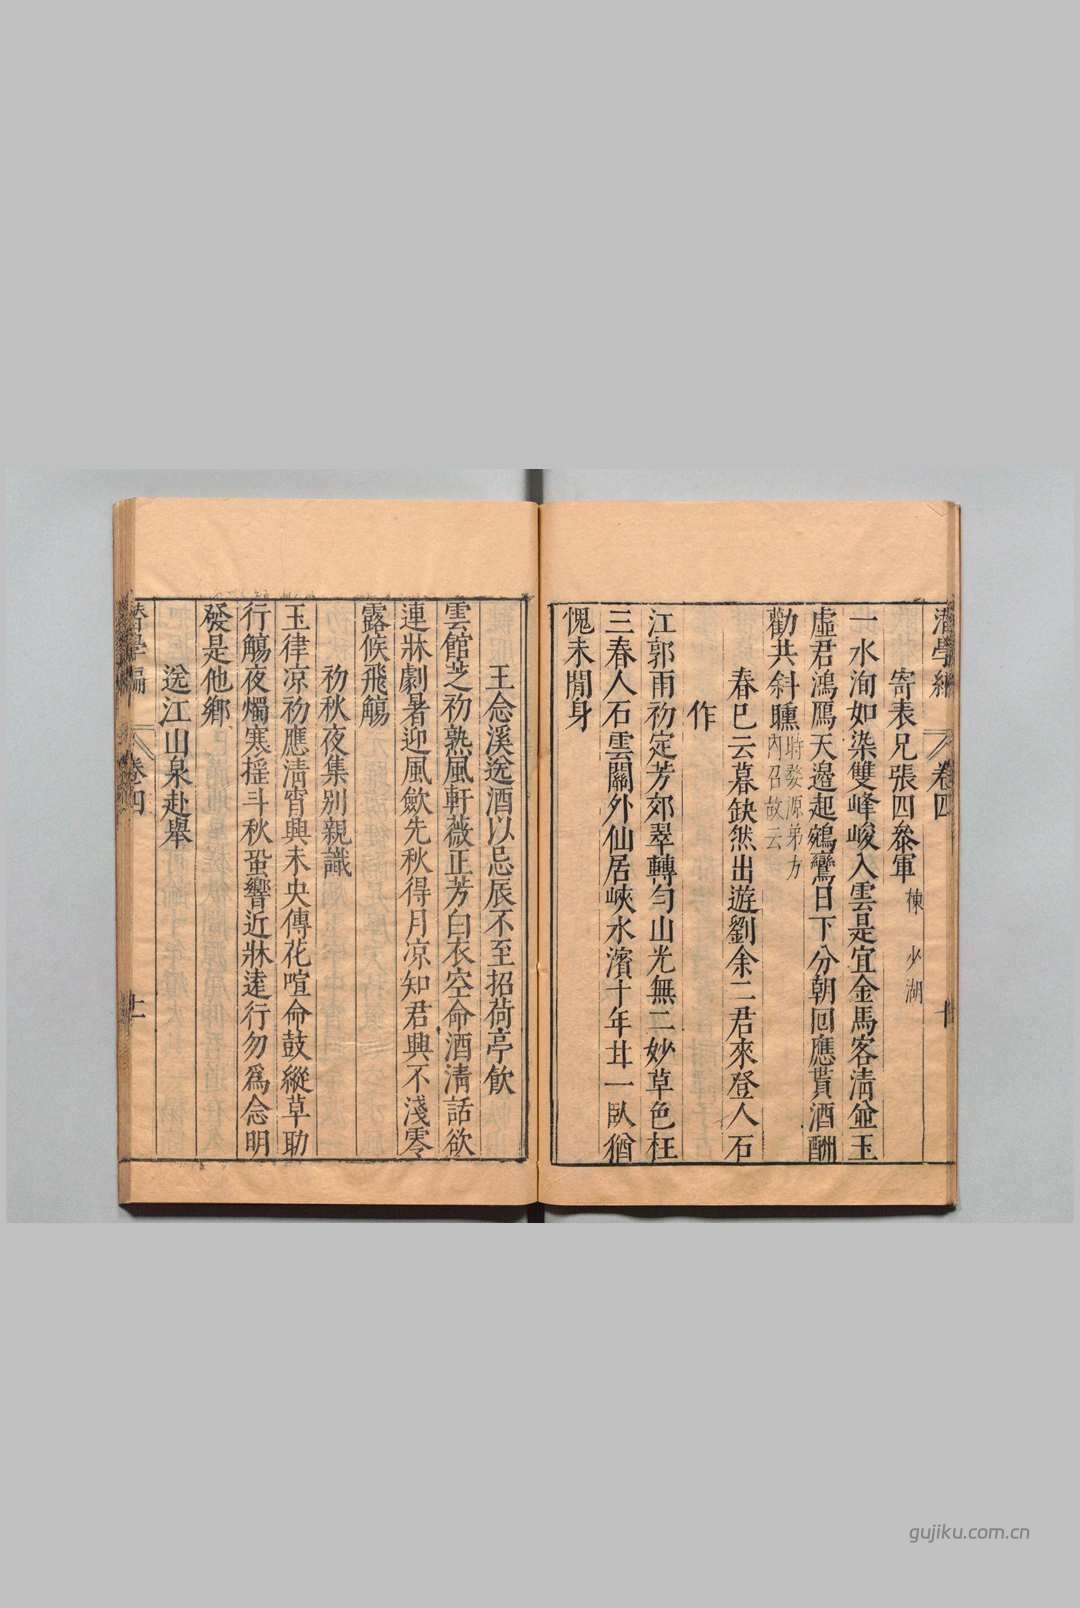 潛學編
卷四
十
寄表兄張四叅軍 棟 少湖
一水洵如染雙峰峻入雲是宜金馬客清並玉
虛君鴻鴈天邊起鵷鸞日下分朝囘應貰酒酬
勸共斜曛 時婺源弟方
內召故云
春巳云暮缺然出遊劉余二君來登人石
作
江郭雨初定芳郊翠轉勻山光無二妙草色枉
三春人石雲關外仙居峽水濱十年丗一臥猶
愧未閒身
王念溪送酒以忌辰不至招荷亭飲
雲館芝初熟風軒薇正芳白衣空命酒清話欲
連牀劇暑迎風歛先秋得月凉知君興不淺零
露候飛觴
初秋夜集別親識
玉律凉初應清宵興未央傳花喧命鼓縱草助
行觴夜燭寒搖斗秋蛩響近牀逹行勿爲念明
發是他鄉
送江山泉赴舉
潛學編
卷四
十一
gujiku.com.cn